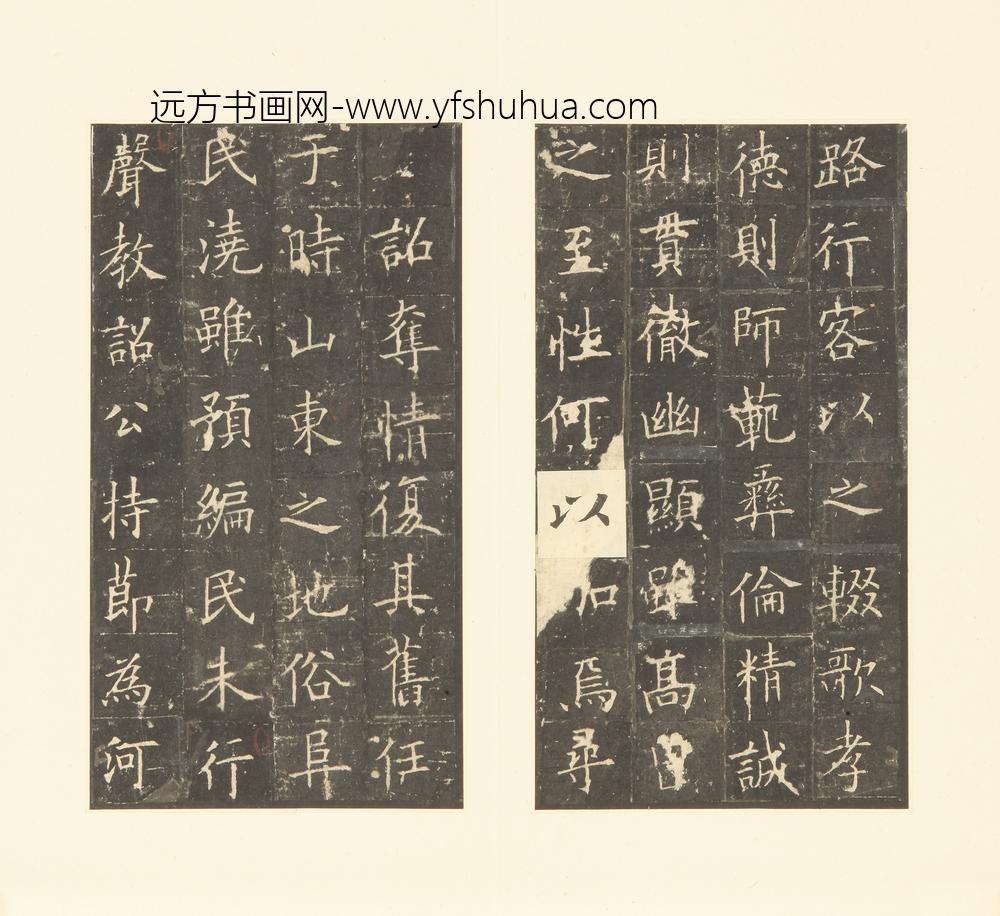 远方书画网-www.yfshuhua.com
路行客以之輟歌孝
德則師範彝倫精誠
則貫徹幽顯雖高曾
之至性何以加焉尋
詔奪情復其舊任
于時山東之地俗阜
民澆雖預編民未行
聲教詔公持節為河